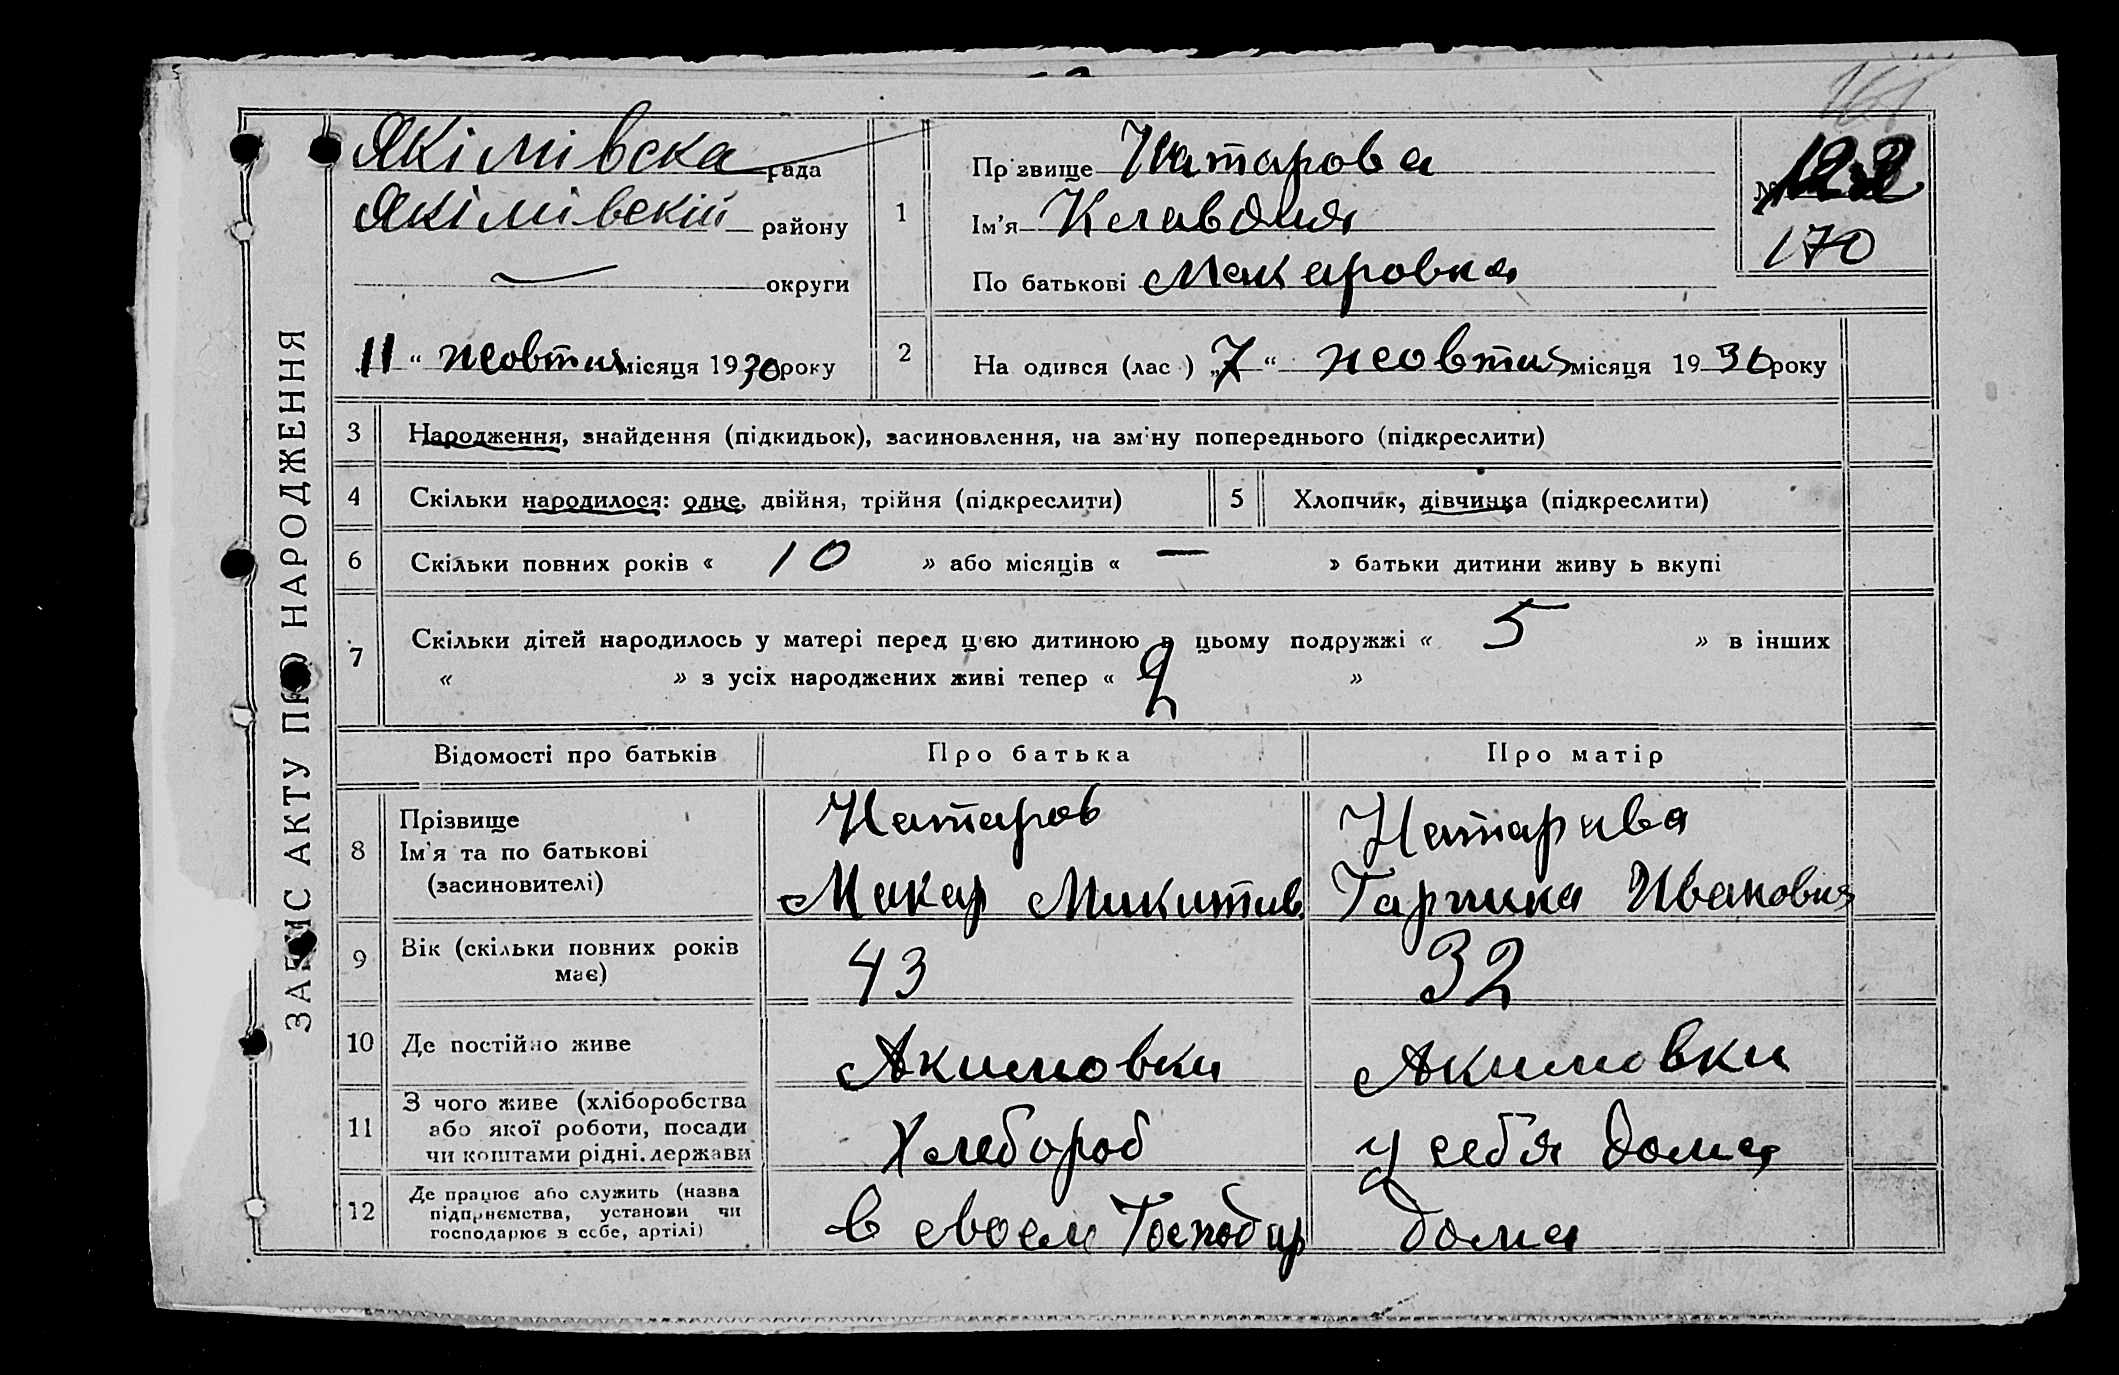 ЗАПИС АКТУ ПРО НАРОДЖЕННЯ
168
Якімівска рада
Якімівскій району
округи
11 " жовтня місяця 1930 року
1
Пр звище Натарова
Ім'я Клавдия
По батькові Макаровна
170
2
На одився (лас ) „7 “ жовтня місяця 1930 року
3 Народження, знайдення (підкидьок), засиновлення, на зм ну попереднього (підкреслити)
4 Скільки народилося: одне, двійня, трійня (підкреслити)
5 Хлопчик, дівчинка (підкреслити)
6 Скільки повних років « 10 » або місяців « — » батьки дитини живу ь вкупі
7 Скільки дітей народилось у матері перед цією дитиною в цьому подружжі « 5 » в інших
« » з усіх народжених живі тепер « 2 »
Відомості про батьків Про батька Про матір
8 Прізвище
Ім'я та по батькові
(засиновителі)
Натаров
Макар Микитив.
Ивановна
9 Вік (скільки повних років
має)
43 32
10 Де постійно живе Акимовки Акимовки
11 З чого живе (хліборобства
або якої роботи, посади
чи коштами рідні, держави
Хлебороб у себя дома
12 Де працює або служить (назва
підприємства, установи чи
господарює в себе, артілі)
в своем Господар дома